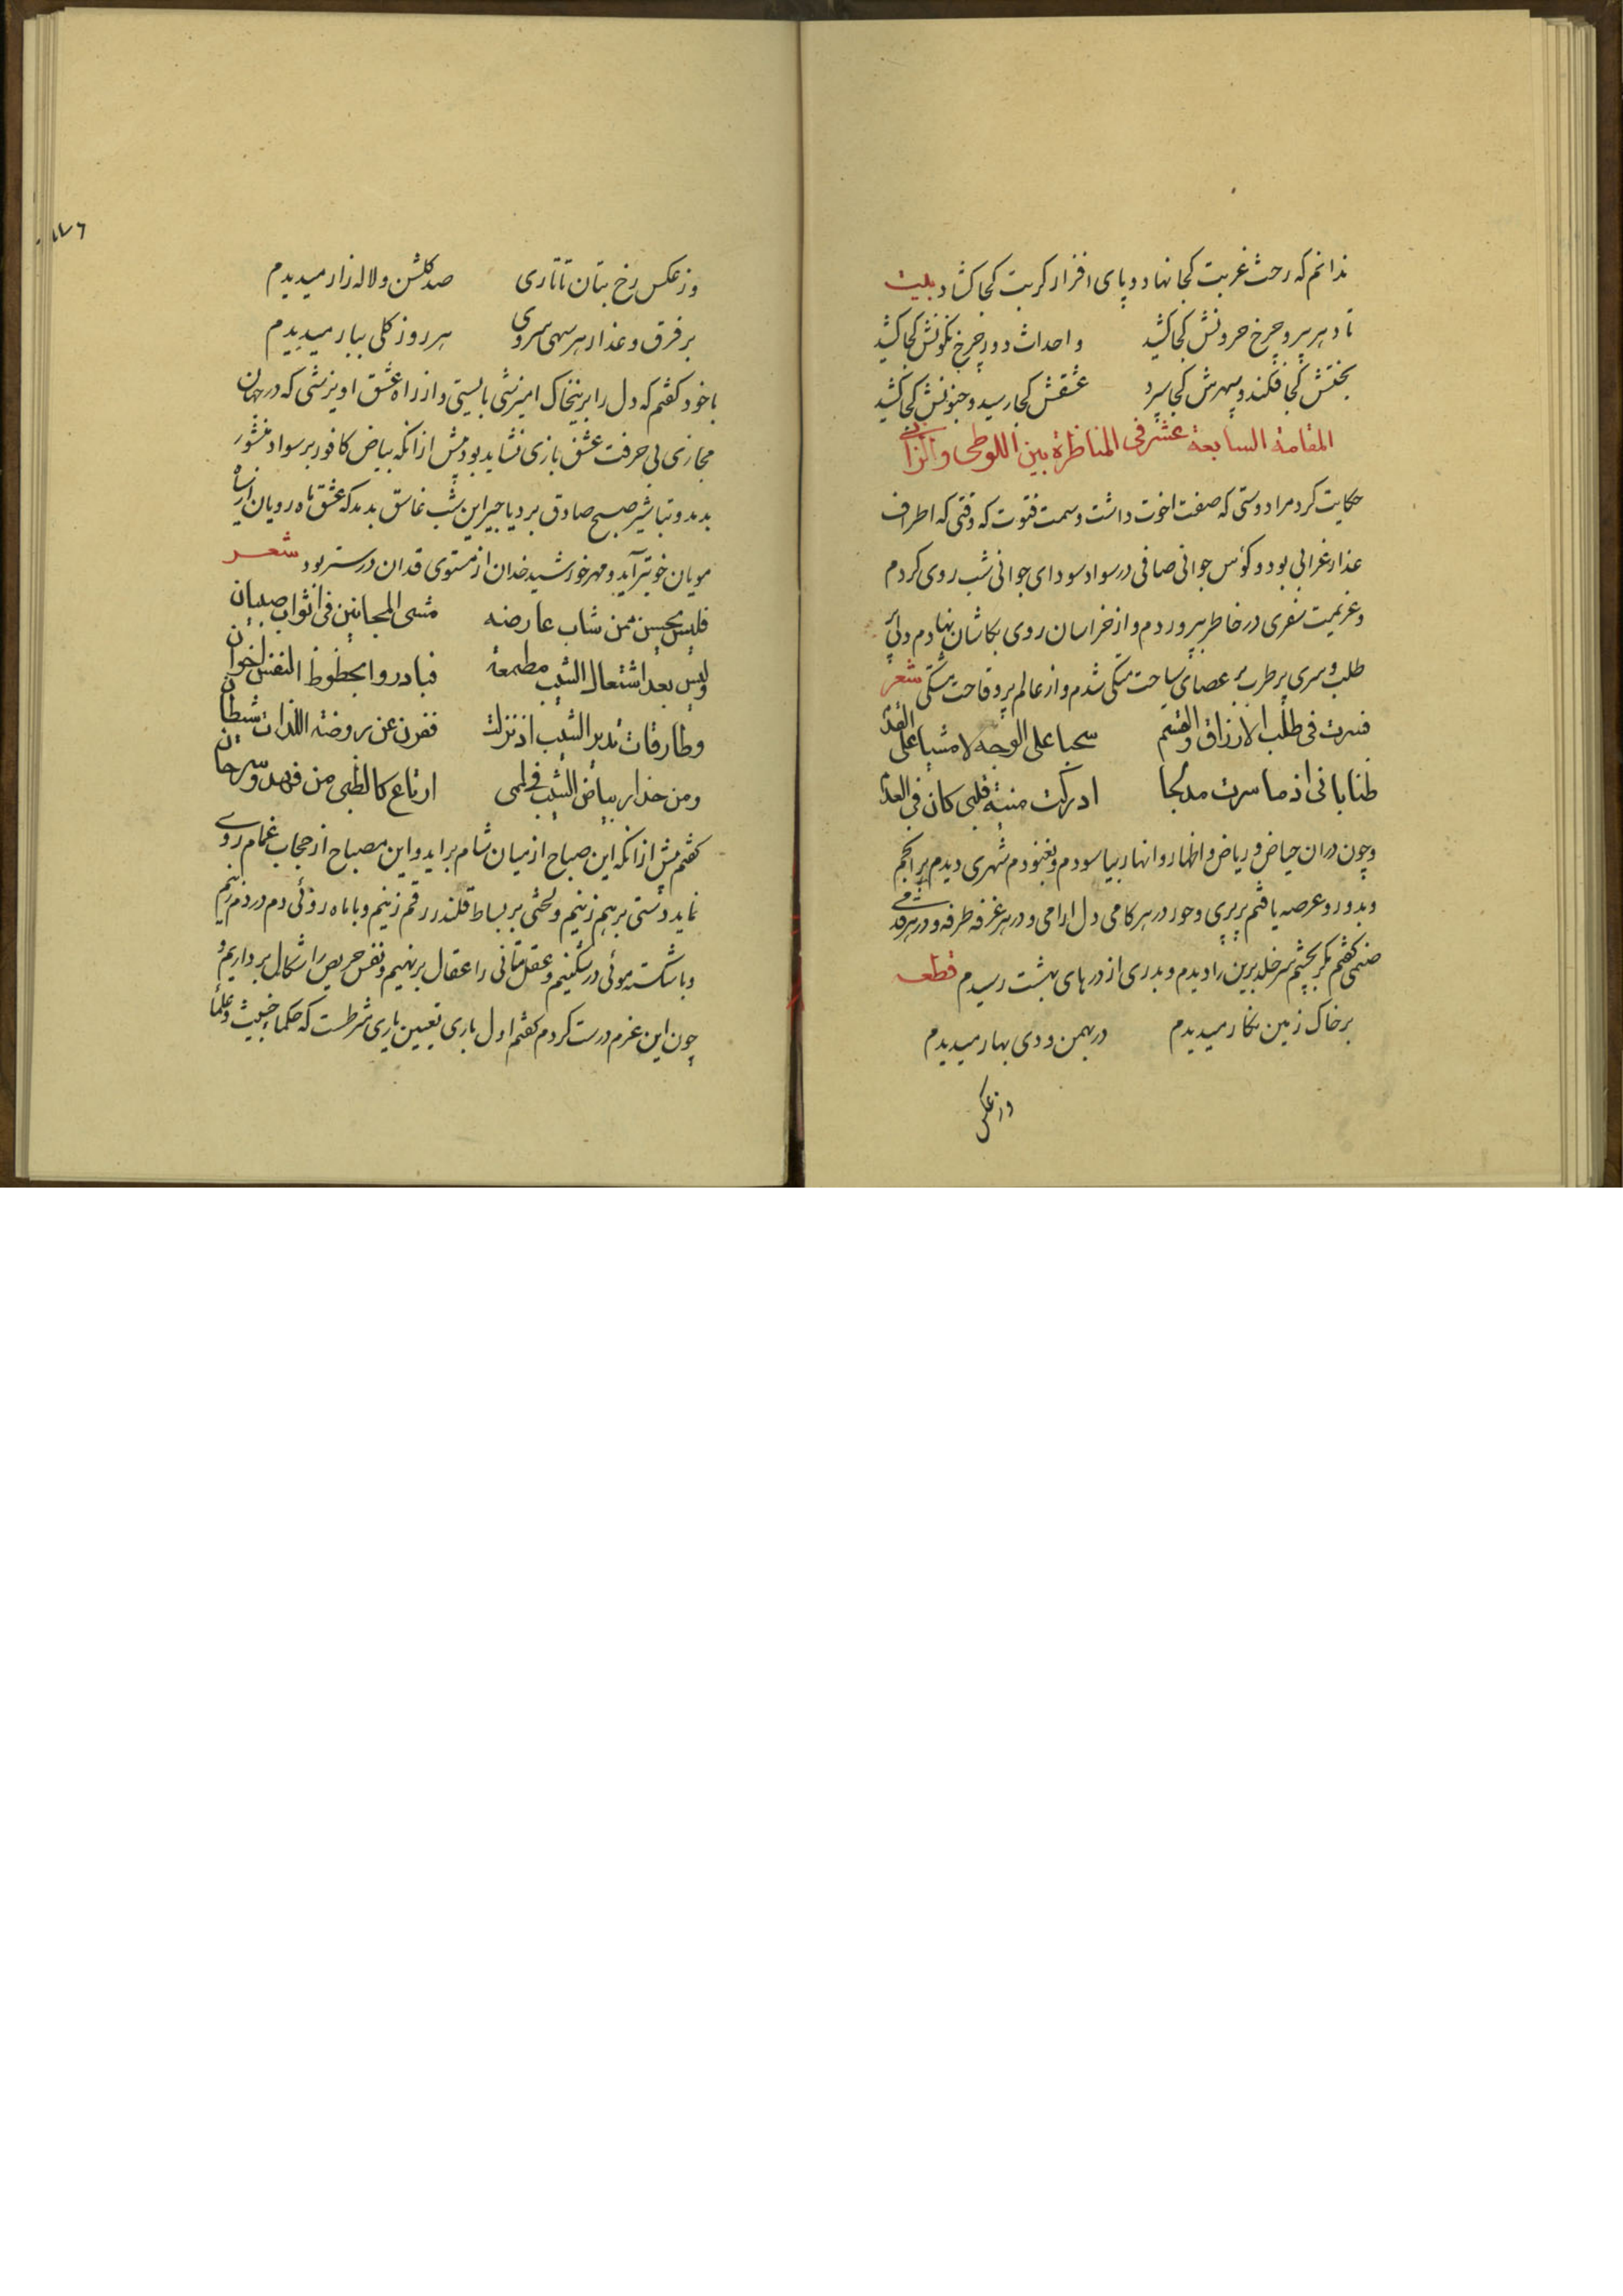 ندانم که رخت غربت کجا نهاد و پای افزار کربت کجا کشاد بیت
تا دهر پیر و چرخ حرونش کجا کشید و احداث دور چرخ نکونش کجا کشید
بختش کجا فکند و سپهرش کجا سپرد عشقش کجا رسید و جنونش کجا کشید
المقامة السابعة عشر فی المناظرة بین اللوطی والزانی
حکایت کرد مرا دوستی که صفت اخوت داشت و سمت فتوت که وقتی که اطراف
عذار غرابی بود و کؤس جوانی صافی در سواد سودای جوانی شب روی کردم
و عزیمت سفری در خاطر بپروردم و از خراسان روی بکاشان نهادم دلی پر
طلب و سری پر طرب بر عصای سیاحت متکی شدم و از عالم پر وقاحت مشتکی شعر
فسرت فی طلب الارزاق والقسم سحبا علی الوجه لا مشیا علی القدم
ظنا بانی اذ ما سرت مدلجا ادرکت منیة قلبی کان فی العدم
و چون دران حیاض و ریاض و اظهار و انهار بیاسودم و بغنودم شهری دیدم پر انجم
و بدور و عرصه یافتم پر پری و حور در هر کامی دل ارامی و در هر غرفه طرفه و در هر قدمی
صنمی کفتم مکر بچشم سر خلد برین را دیدم و بدری از درهای بهشت رسیدم قطعه
بر خاک زمین نکار میدیدم در بهمن و دی بهار میدیدم
وز عکس
وز عکس رخ بتان تاتاری صد کلشن و لاله زار میدیدم
بر فرق و عذار هر سهی سروی هر روز کلی ببار میدیدم
با خود کفتم که دل را برینخاک امیزشی بایستی و از راه عشق اویزشی که در جهان
مجازی بی حرفت عشق بازی نشاید بود پیش ازانکه بیاض کافور بر سواد منشور
بدمد و تباشیر صبح صادق بر دیاجیر این شب غاسق بدمد که عشق ماه رویان از سیاه
مویان خوبتر آید و مهر خورشید خدان از مستوی قدان درستر بود شعر
فلیس یحسن ممن شاب عارضه مشی المجانین فی اثواب صبیان
ولیس بعد اشتعال الشیب مطمعة فبادروا بحظوظ النفس اخوان
وطارقات نذیر الشیب اذ نزلت ففرن عن روضة اللذات شیطان
ومن حذار بیاض الشیب فی لمی ارتاع کالظبی من فهد وسرحان
کفتم پیش ازانکه این صباح از میان شام براید و این مصباح از حجاب غمام روی
نماید دستی برهم زنیم و لختی بر بساط قلندر رقم زنیم و با ماه روئی دم در دم زنیم
و با شکسته موئی در شکنیم و عقل متانی را عقال برنهیم و نفس حریص را شکال برداریم و
چون این عزم درست کردم کفتم اول باری تعیین یاری شرطست که حکما خبیث و علما